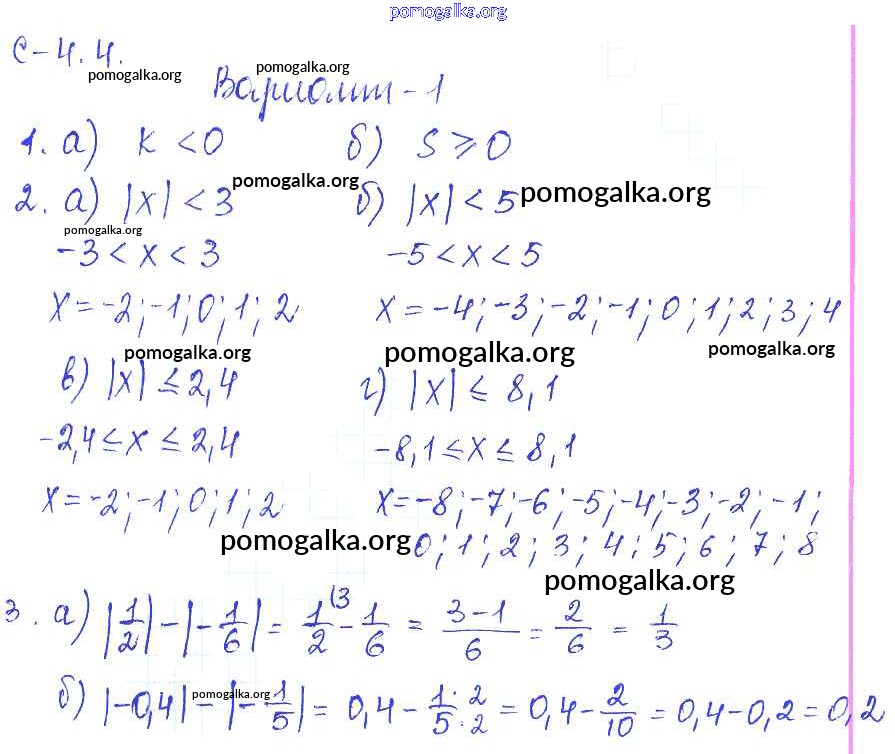 pomogalka.org
С-4.4.
pomogalka.org pomogalka.org
Вариант-1
1. а) k < 0 б) S ⩾ 0
2. а) |x| < 3 pomogalka.org б) |x| < 5 pomogalka.org
pomogalka.org
-3 < x < 3 -5 < x < 5
x = -2; -1; 0; 1; 2 x = -4; -3; -2; -1; 0; 1; 2; 3; 4
pomogalka.org pomogalka.org pomogalka.org
в) |x| ≤ 2,4 г) |x| ≤ 8,1
-2,4 ≤ x ≤ 2,4 -8,1 ≤ x ≤ 8,1
x = -2; -1; 0; 1; 2 x = -8; -7; -6; -5; -4; -3; -2; -1;
pomogalka.org 0; 1; 2; 3; 4; 5; 6; 7; 8
pomogalka.org
3. а) |1/2| - |-1/6| = 1/2 (3 - 1/6 = 3-1/6 = 2/6 = 1/3
б) |-0,4| pomogalka.org - |-1/5| = 0,4 - 1·2/5·2 = 0,4 - 2/10 = 0,4 - 0,2 = 0,2